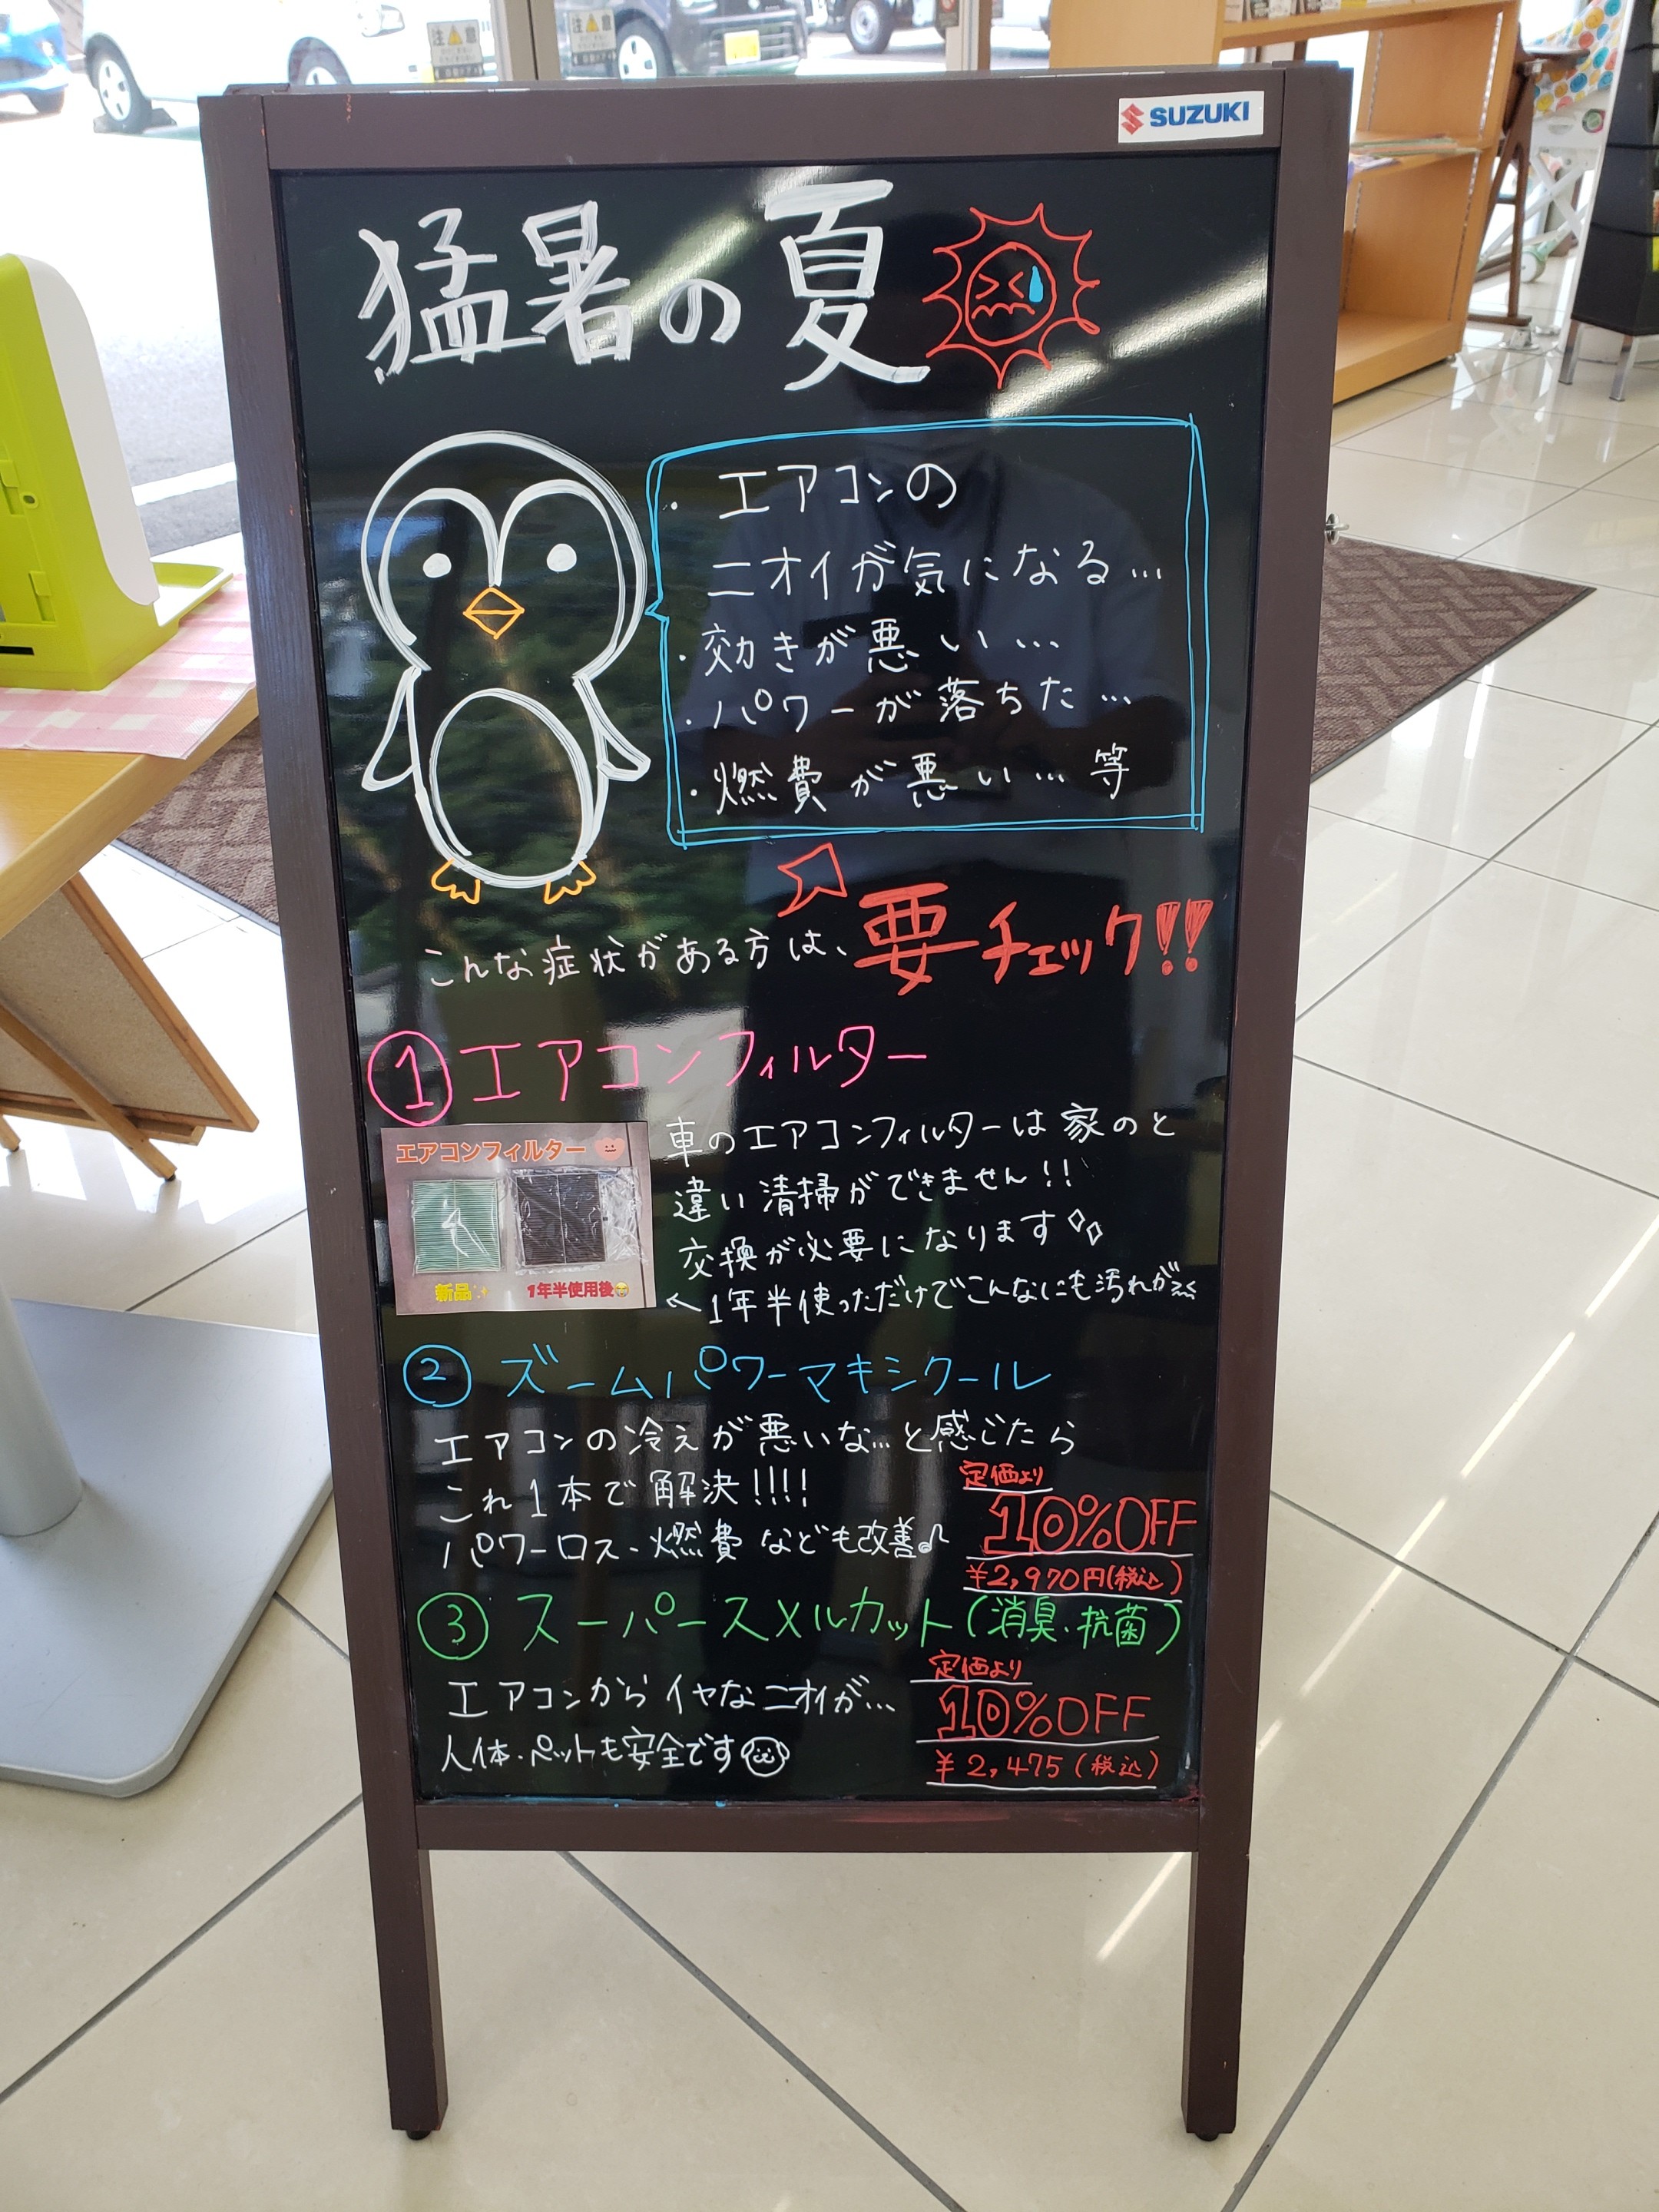 注意
注意
SUZUKI
猛暑の夏
・エアコンの
ニオイが気になる…
・効きが悪い…
・パワーが落ちた…
・燃費が悪い…等
こんな症状がある方は、要チェック!!
①エアコンフィルター
エアコンフィルター
新品
1年半使用後
車のエアコンフィルターは家のと
違い清掃ができません!!
交換が必要になります
←1年半使っただけでこんなにも汚れが
②ズームパワーマキシクール
エアコンの冷えが悪いな…と感じたら
これ1本で解決!!!!
パワーロス・燃費なども改善♪
定価より
10%OFF
¥2,970円(税込)
③スーパースメルカット(消臭・抗菌)
エアコンからイヤなニオイが…
人体・ペットも安全です
定価より
10%OFF
¥2,475(税込)